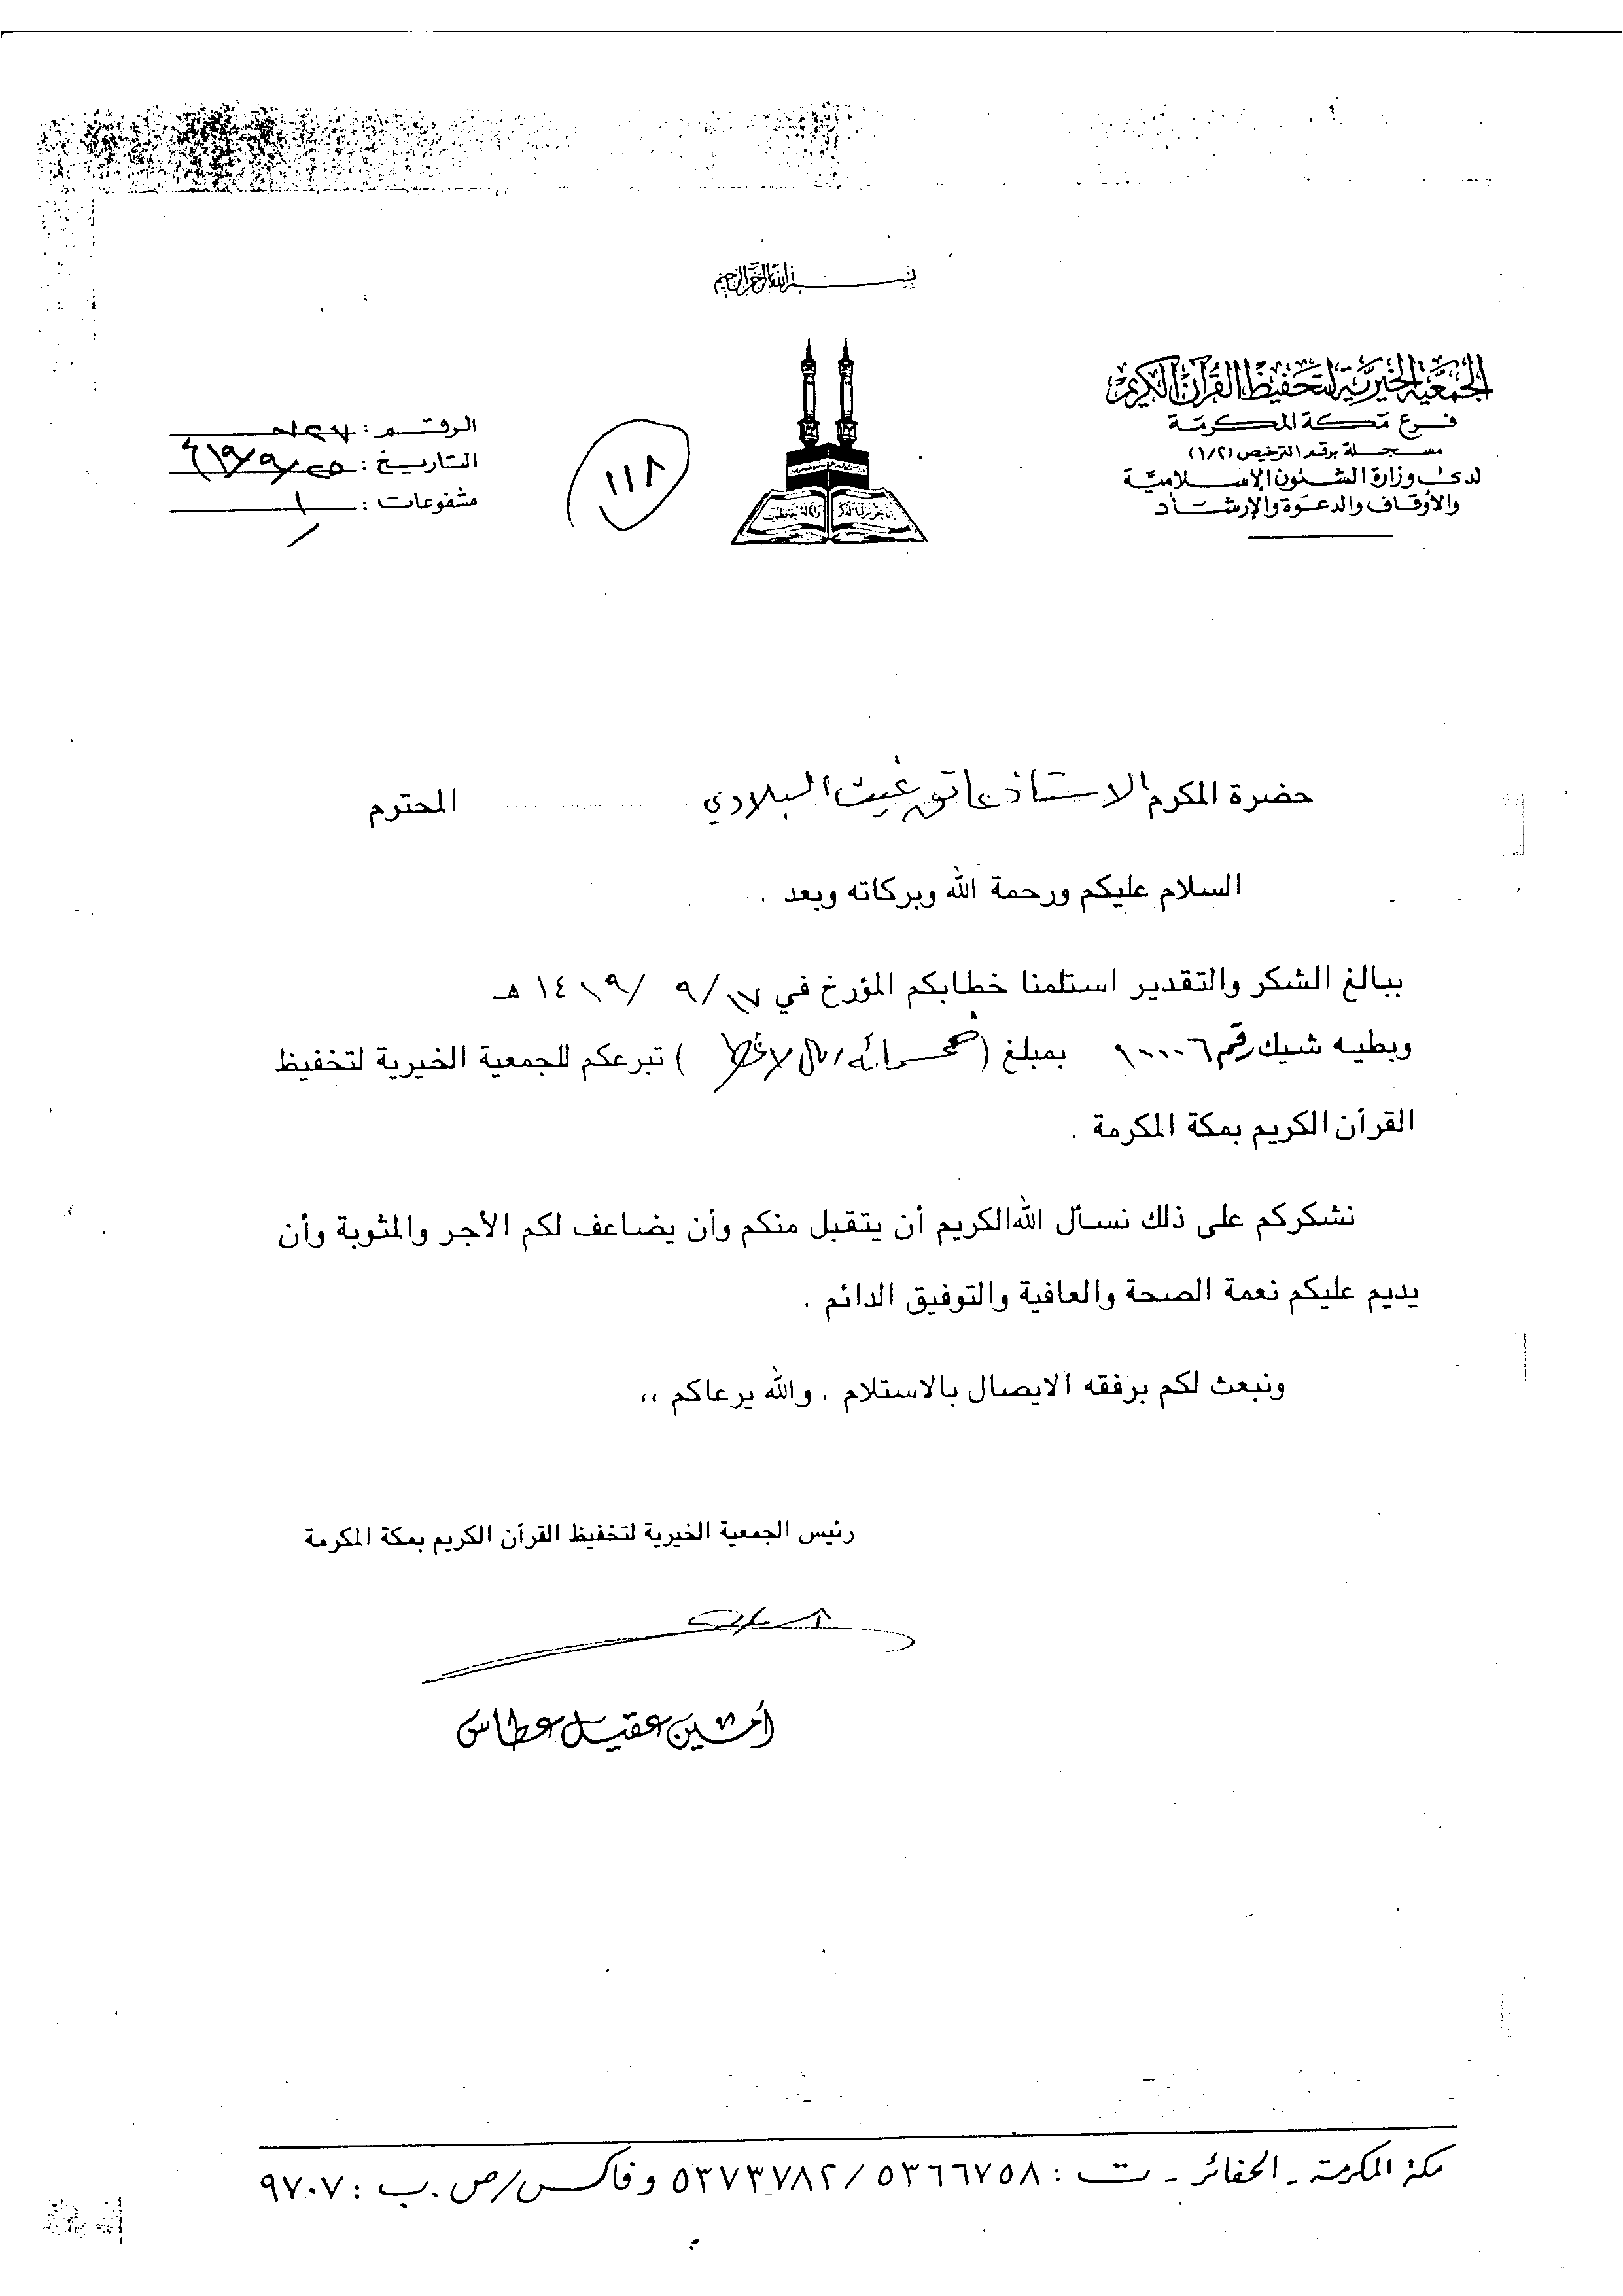 بسم الله الرحمن الرحيم
الجمعية الخيرية لتحفيظ القرآن الكريم
فرع مكة المكرمة
مسجلة برقم الترخيص (١/٢)
لدى وزارة الشئون الإسلامية
والأوقاف والدعوة والإرشاد
١١٨
الرقم :
التاريخ : ٢٥/٩/٤١٩
مشفوعات : ١
حضرة المكرم الاستاذ عاتق غيث البلادي المحترم
السلام عليكم ورحمة الله وبركاته وبعد .
ببالغ الشكر والتقدير استلمنا خطابكم المؤرخ في ١٧/ ٩ /١٤١٩ هـ
وبطيه شيك رقم ١٠٠٠٠٦ بمبلغ (خمسمائة ريال لاغير) تبرعكم للجمعية الخيرية لتخفيظ
القرآن الكريم بمكة المكرمة .
نشكركم على ذلك نسأل الله الكريم أن يتقبل منكم وأن يضاعف لكم الأجر والمثوبة وأن
يديم عليكم نعمة الصحة والعافية والتوفيق الدائم .
ونبعث لكم برفقه الايصال بالاستلام . والله يرعاكم ،،
رئيس الجمعية الخيرية لتخفيظ القرآن الكريم بمكة المكرمة
أمين عقيل عطاس
مكة المكرمة - الحفائر - ت : ٥٣٦٦٧٥٨ / ٥٣٧٣٧٨٢ وفاكس/ص.ب : ٩٧٠٧